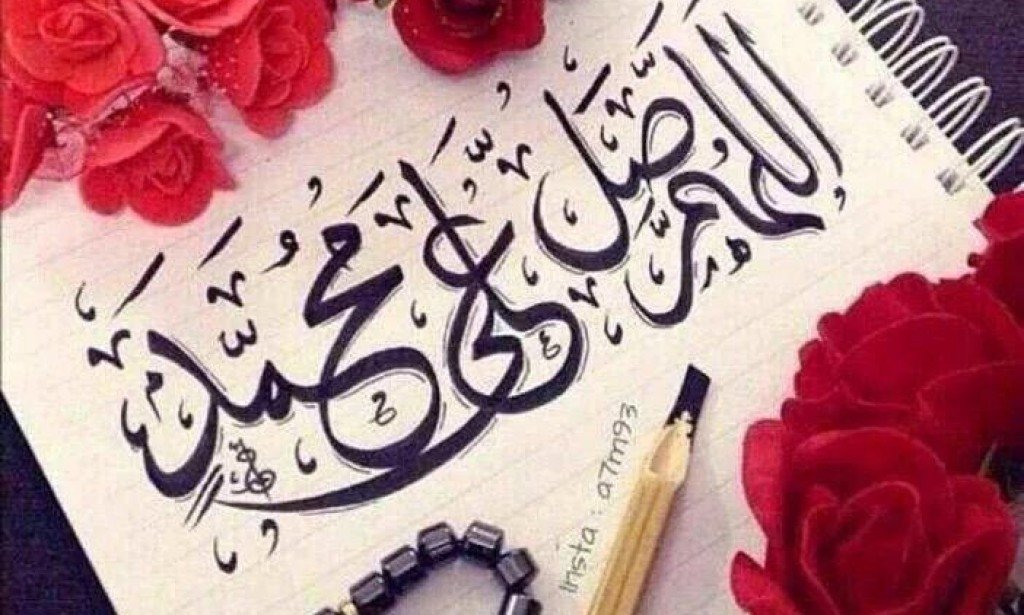 اللهم صل على محمد
Insta : a7m93